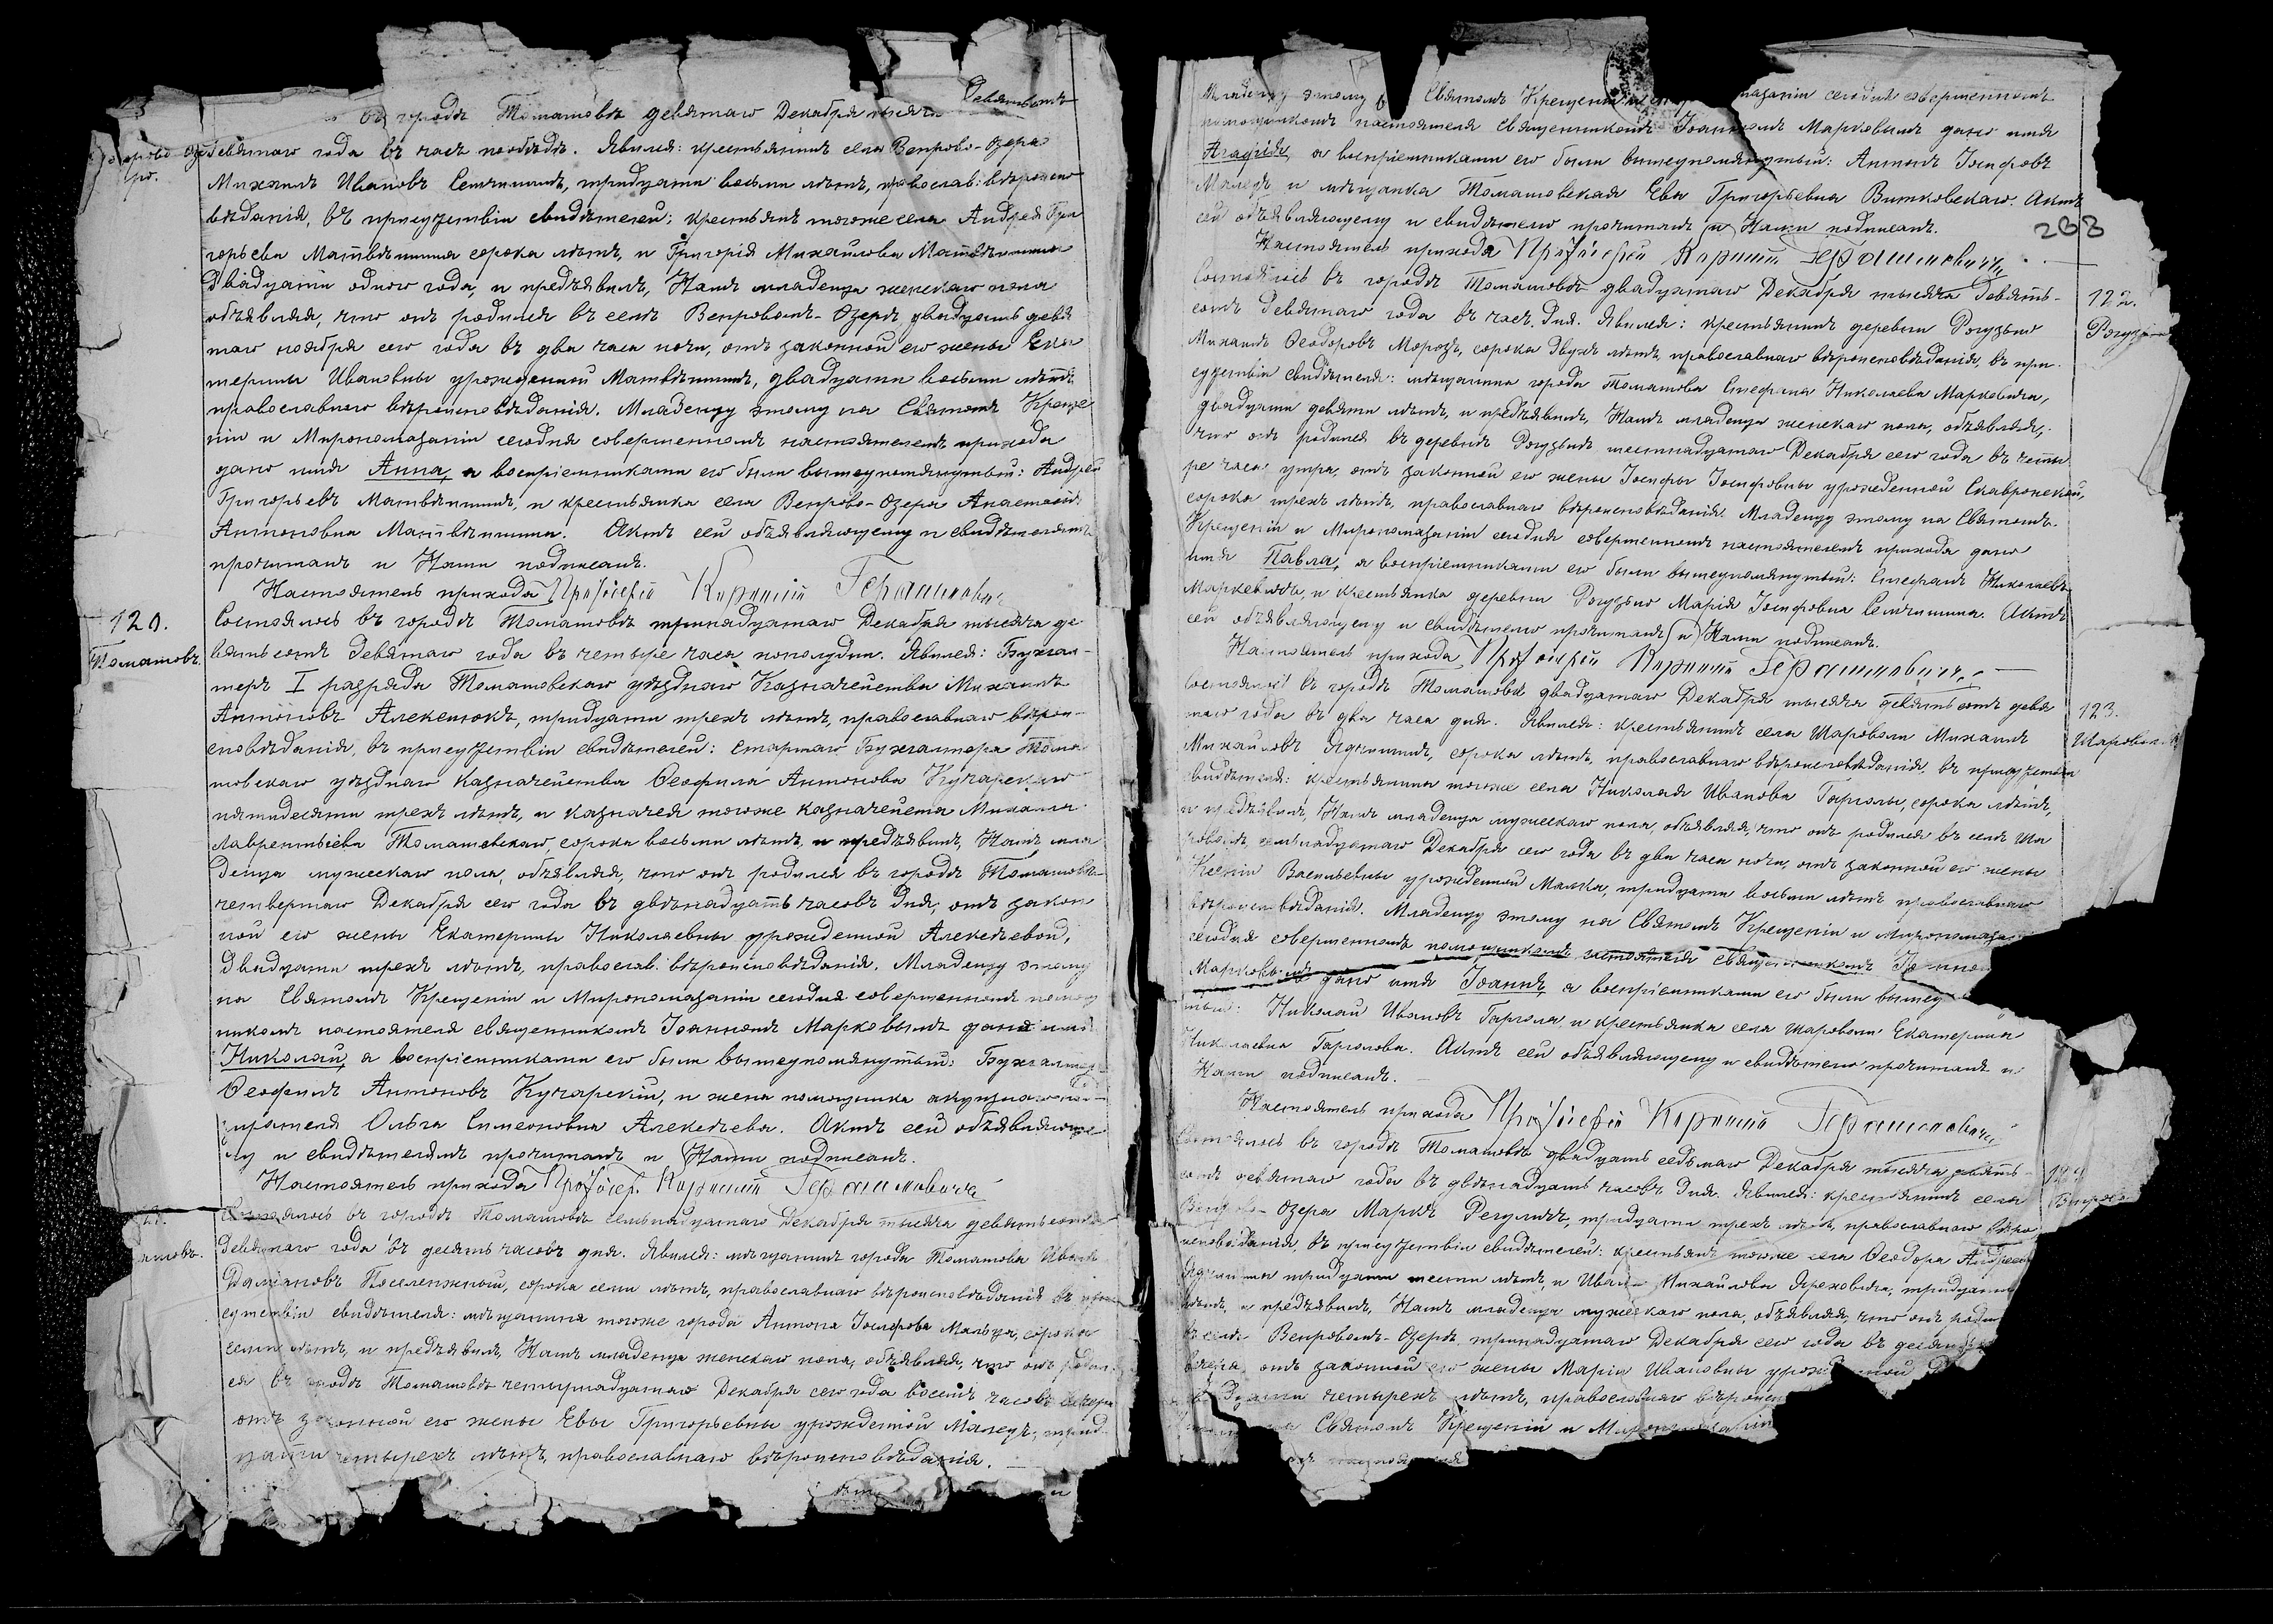 въ городѣ Томашовѣ девятаго Декабря тысяча Девятьсотъ
Девятаго года въ часъ пообѣдѣ. Явился: крестьянинъ села Венрово-Озера
Михаилъ Ивановъ Семчишинъ, тридцати восьми лѣтъ, православ: вѣроиспо
вѣданія, въ присутствіи свидѣтелей: крестьянъ тогоже села Андрея Гри
горьева Матвѣишина сорока лѣтъ, и Григорія Михайлова Матвѣишина
Двадцати одного года, и предъявилъ, Намъ младенца женскаго пола
объявляя, что онъ родился въ селѣ Венровомъ-Озерѣ двадцать девя
таго ноября сего года въ два часа ночи, отъ законной его жены Ека
терины Ивановны урожденной Матвѣишинъ, двадцати восьми лѣтъ,
православнаго вѣроисповѣданія. Младенцу этому на Святомъ Креще
ніи и Миропомазаніи сегодня совершенномъ настоятелемъ прихода
дано имя Анна, а воспріемниками его были вышеупомянутый: Андрей
Григорьевъ Матвѣишинъ, и крестьянка села Венрово-Озера Анастасія
Антоновна Матвѣишина. Актъ сей объявляющему и свидѣтелямъ
прочитанъ и Нами подписанъ.
Настоятель прихода Протоіерей Корнилій Герашимовичъ
120.
Томашовъ.
Состоялось въ городѣ Томашовѣ тринадцатаго Декабря тысяча де
вятьсотъ Девятаго года въ четыре часа пополудни. Явился: Бухгал-
теръ I разряда Томашовскаго уѣзднаго Казначейства Михаилъ
Антоновъ Алексюкъ, тридцати трехъ лѣтъ, православнаго вѣрои-
сповѣданія, въ присутствіи свидѣтелей: старшаго Бухгалтера Тома
шовскаго уѣзднаго казначейства Ѳеофила Антонова Кучарскаго
пятидесяти трехъ лѣтъ, и казначея тогоже казначейства Михаила
Лаврентьева Томашевскаго, сорока восьми лѣтъ, и предъявилъ, Намъ мла
денца мужескаго пола, объявляя, что онъ родился въ городѣ Томашовѣ
четвертаго Декабря сего года въ двѣнадцать часовъ дня, отъ закон
ной его жены Екатерины Николаевны урожденной Алексѣевой,
двадцати трехъ лѣтъ, православ. вѣроисповѣданія. Младенцу этому
на Святомъ Крещеніи и Миропомазаніи сегодня совершенномъ помощ
никомъ настоятеля священникомъ Іоанномъ Марковымъ дано имя
Николай, а воспріемниками его были вышеупомянутый: Бухгалтеръ
Ѳеофилъ Антоновъ Кучарскій, и жена помощника акцизнаго над-
зирателя Ольга Симеоновна Алексѣева. Актъ сей объявляюще
му и свидѣтелямъ прочитанъ и Нами подписанъ.
Настоятель прихода Протоіер. Корнилій Герашимовичъ
Состоялось въ городѣ Томашовѣ семьнадцатаго Декабря тысяча девятьсотъ
Девятаго года въ десять часовъ дня. Явился: мѣщанинъ города Томашова Иванъ
Даміановъ Поселенжный, сорока семи лѣтъ, православнаго вѣроисповѣданія въ при
сутствіи свидѣтеля: мѣщанина тогоже города Антона Іосифова Мальца, сорока
семи лѣтъ, и предъявилъ, Намъ младенца женскаго пола, объявляя, что онъ родил
ся въ городѣ Томашовѣ четырнадцатаго Декабря сего года восемь часовъ вечера
отъ законной его жены Евы Григорьевны урожденной Малецъ, трид-
цати четырехъ лѣтъ, православнаго вѣроисповѣданія.
Младенцу этому Святомъ Крещеніи и мазаніи сегодня совершенномъ
помощникомъ настоятеля священникомъ Іоанномъ Марковымъ дано имя
Агафія, а воспріемниками его были вышеупомянутый: Антонъ Іосифовъ
Малецъ и мѣщанка Томашовская Ева Григорьевна Витковскаго. Актъ
сей объявляющему и свидѣтелю прочитанъ и Нами подписанъ.
268
Настоятель прихода Протоіерей Корнилій Герашимовичъ
122.
Состоялось въ городѣ Томашовѣ двадцатаго Декабря тысяча Девять-
сотъ Девятаго года въ часъ дня. Явился: крестьянинъ деревни Рогузьно
Михаилъ Ѳеодоровъ Морозъ, сорока двухъ лѣтъ, православнаго вѣроисповѣданія, въ при-
сутствіи свидѣтеля: мѣщанина города Томашова Стефана Николаева Марковича,
двадцати девяти лѣтъ, и предъявилъ, Намъ младенца женскаго пола, объявляя,
что онъ родился въ деревнѣ Рогузьнѣ шестнадцатаго Декабря сего года въ четы
ре часа утра, отъ законной его жены Іосифы Іосифовны урожденной Скавронской,
сорока трехъ лѣтъ, православнаго вѣроисповѣданія. Младенцу этому на Святомъ
Крещеніи и Миропомазаніи сегодня совершенномъ настоятелемъ прихода дано
имя Павла, а воспріемниками его были вышеупомянутый: Стефанъ Николаевъ
Маркевичъ, и крестьянка деревни Рогузьно Марія Іосифовна Семчишина. Актъ
сей объявляющему и свидѣтелю прочитанъ и Нами подписанъ.
Настоятель прихода Протоіерей Корнилій Герашимовичъ
123.
Состоялось въ городѣ Томашовѣ двадцатаго Декабря тысяча девятьсотъ девя
таго года въ два часа дня. Явился: крестьянинъ села Шароволи Михаилъ
Михайловъ сорока лѣтъ, православнаго вѣроисповѣданія, въ присутствіи
свидѣтеля: крестьянина тогоже села Николая Иванова Гарголы, сорока лѣтъ,
и предъявилъ, Намъ младенца мужескаго пола, объявляя, что онъ родился въ селѣ Ша
роволѣ, семьнадцатаго Декабря сего года въ два часа ночи, отъ законной его жены
Ксеніи Васильевны урожденной Малка, тридцати восьми лѣтъ православнаго
вѣроисповѣданія. Младенцу этому на Святомъ Крещеніи и Миропомаза
сегодня совершенномъ помощникомъ настоятеля священникомъ
Марковымъ дано имя Іоаннъ, а воспріемниками его были вышеу
тый: Николай Ивановъ Гаргола, и крестьянка села Шароволи Екатерина
Николаевна Гарголова. Актъ сей объявляющему и свидѣтелю прочитанъ и
Нами подписанъ.
Настоятель прихода Протоіерей Корнилій Герашимовичъ
Состоялось въ городѣ Томашовѣ двадцать седьмаго Декабря тысяча девять-
сотъ девятаго года въ двѣнадцать часовъ дня. Явился: крестьянинъ села
Венрово-Озера Маркъ Регуличъ, тридцати трехъ лѣтъ, православнаго вѣро
исповѣданія, въ присутствіи свидѣтелей: крестьянъ тогоже села Ѳеодора Андреева
тридцати шести лѣтъ, и Ивана Михайлова Яреховича, тридцати
лѣтъ, и предъявилъ, Намъ младенца мужескаго пола, объявляя, что онъ роди
въ селѣ Венровомъ-Озерѣ тринадцатаго Декабря сего года въ
вечера, отъ законной его жены Маріи Ивановны
четырехъ лѣтъ, православнаго
Святомъ Крещеніи и